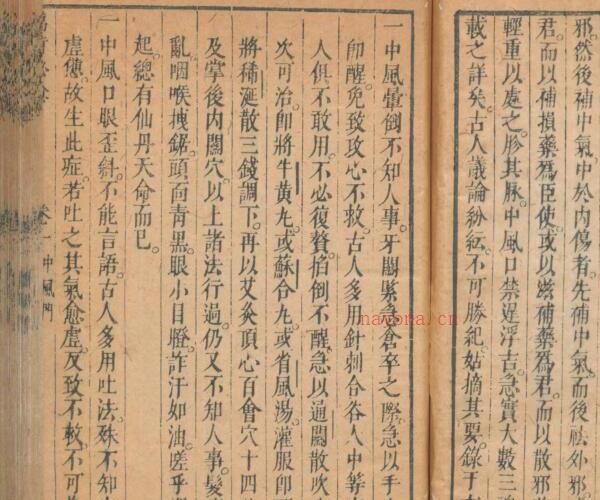 邪。然後補中氣。中於內傷者。先補中氣。而後祛外邪。
君。而以補損藥為臣使。或以滋補藥為君。而以散邪
輕重以處之。胗其脉。中風口禁。遲浮吉。急實大數三
載之詳矣。古人議論紛紜。不可勝紀。姑摘其要。錄于
一中風暈倒。不知人事。牙關緊急。倉卒之際。急以手
卽醒。免致攻心不救。古人多用針刺合谷人中等
人俱不敢用。不必復贅。掐倒不醒。急以通關散吹
次可治。卽將牛黃丸。或蘇合丸。或省風湯。灌服卽
將稀涎散三錢調下。再以艾灸頂心百會穴十四
及掌後內關穴。以上諸法行過。仍又不知人事。髮
亂。咽喉拽鋸。頭面青黑。眼小目瞪。詐汗如油。嗟乎
起。總有仙丹。天命而已。
一中風口眼歪斜。不能言語。古人多用吐法。殊不知
虛憊。故生此症。若吐之。其氣愈虛。反致不救。不可
卷一 中風門
navora.cn